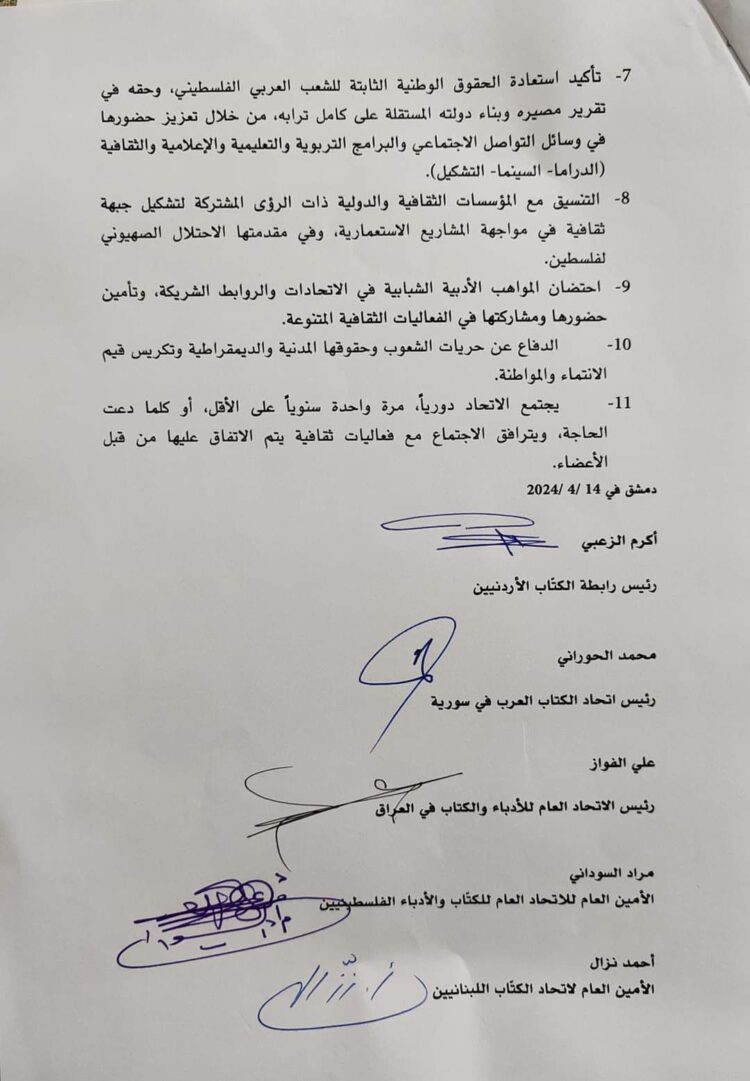 7- تأكيد استعادة الحقوق الوطنية الثابتة للشعب العربي الفلسطيني، وحقه في
تقرير مصيره وبناء دولته المستقلة على كامل ترابه، من خلال تعزيز حضورها
في وسائل التواصل الاجتماعي والبرامج التربوية والتعليمية والإعلامية والثقافية
(الدراما- السينما- التشكيل).
8- التنسيق مع المؤسسات الثقافية والدولية ذات الرؤى المشتركة لتشكيل جبهة
ثقافية في مواجهة المشاريع الاستعمارية، وفي مقدمتها الاحتلال الصهيوني
لفلسطين.
9- احتضان المواهب الأدبية الشبابية في الاتحادات والروابط الشريكة، وتأمين
حضورها ومشاركتها في الفعاليات الثقافية المتنوعة.
10- الدفاع عن حريات الشعوب وحقوقها المدنية والديمقراطية وتكريس قيم
الانتماء والمواطنة.
11- يجتمع الاتحاد دورياً، مرة واحدة سنوياً على الأقل، أو كلما دعت
الحاجة، ويترافق الاجتماع مع فعاليات ثقافية يتم الاتفاق عليها من قبل
الأعضاء.
دمشق في 14 /4 /2024
أكرم الزعبي
رئيس رابطة الكتّاب الأردنيين
محمد الحوراني
رئيس اتحاد الكتاب العرب في سورية
علي الفواز
رئيس الاتحاد العام للأدباء والكتاب في العراق
مراد السوداني
الأمين العام للاتحاد العام للكتّاب والأدباء الفلسطينيين
أحمد نزال
الأمين العام لاتحاد الكتّاب اللبنانيين
أ. نزّال